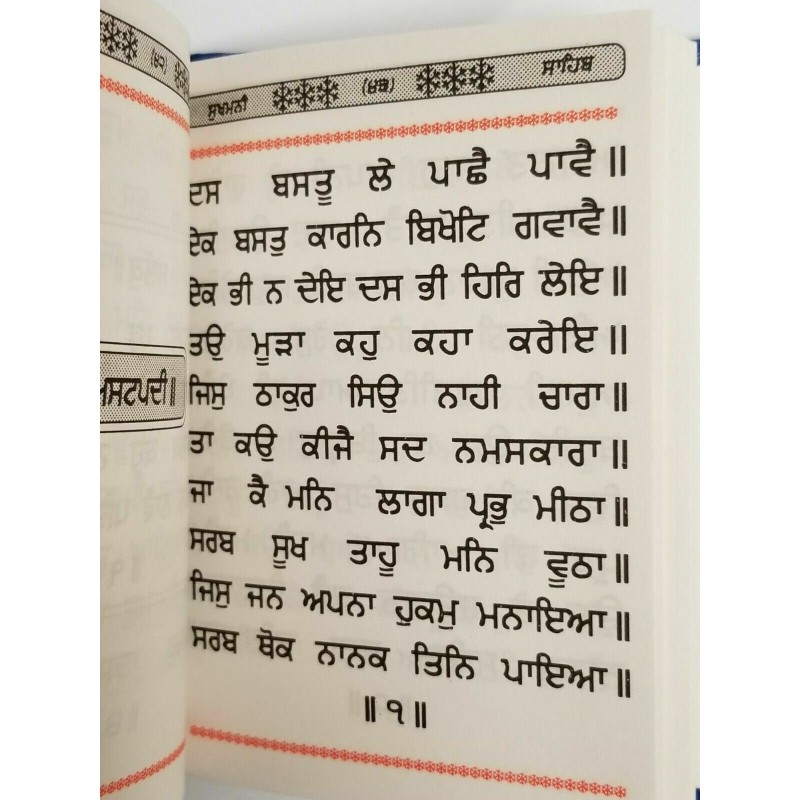 ਅਸਟਪਦੀ॥
ਸੁਖਮਨੀ ਸਾਹਿਬ
ਦਸ ਬਸਤੂ ਲੇ ਪਾਛੈ ਪਾਵੈ॥
ਏਕ ਬਸਤੁ ਕਾਰਨਿ ਬਿਖੋਟਿ ਗਵਾਵੈ॥
ਏਕ ਭੀ ਨ ਦੇਇ ਦਸ ਭੀ ਹਿਰਿ ਲੇਇ॥
ਤਉ ਮੂੜਾ ਕਹੁ ਕਹਾ ਕਰੇਇ॥
ਜਿਸੁ ਠਾਕੁਰ ਸਿਉ ਨਾਹੀ ਚਾਰਾ॥
ਤਾ ਕਉ ਕੀਜੈ ਸਦ ਨਮਸਕਾਰਾ॥
ਜਾ ਕੈ ਮਨਿ ਲਾਗਾ ਪ੍ਰਭੁ ਮੀਠਾ॥
ਸਰਬ ਸੂਖ ਤਾਹੂ ਮਨਿ ਵੂਠਾ॥
ਜਿਸੁ ਜਨ ਅਪਨਾ ਹੁਕਮੁ ਮਨਾਇਆ॥
ਸਰਬ ਥੋਕ ਨਾਨਕ ਤਿਨਿ ਪਾਇਆ॥
॥੧॥